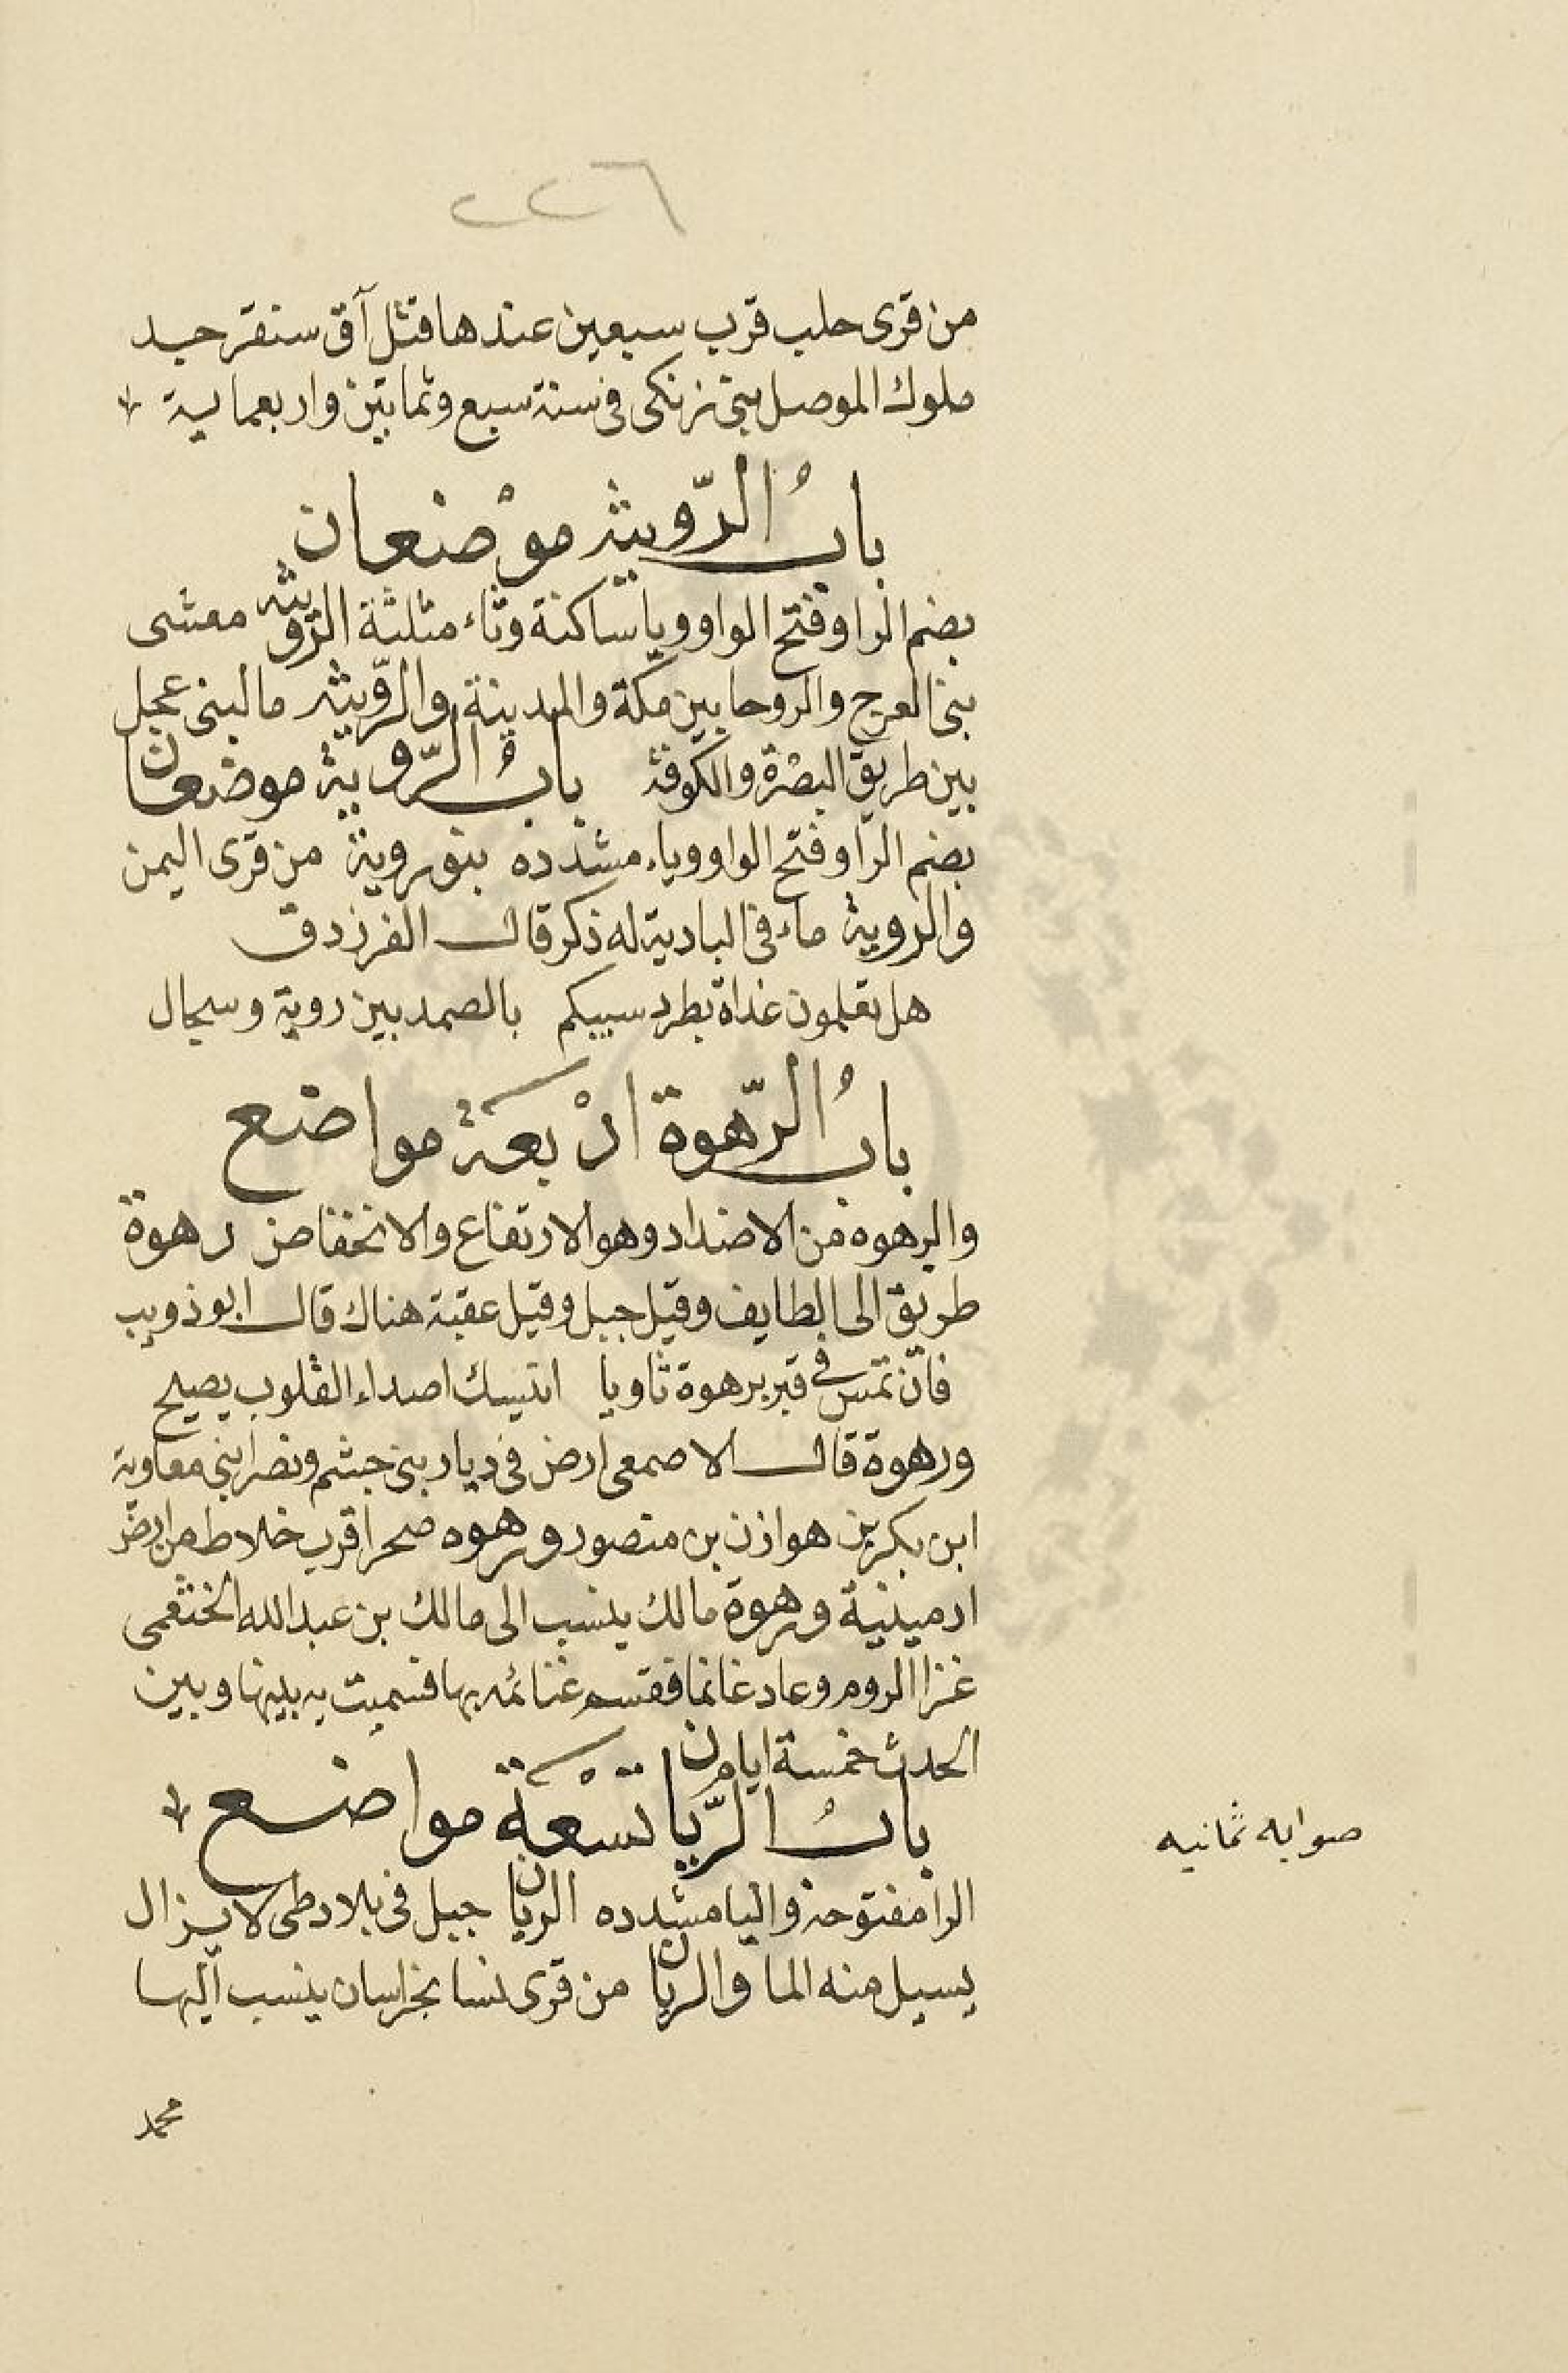 ٢٢٦
من قرى حلب قرب سبعين عندها قتل آق سنقر جد
ملوك الموصل بني زنكي في سنة سبع وثمانين واربعماية
بابُ الرّويثه موْضعان
بضم الرا وفتح الواو ويا ساكنة وثاء مثلثة الرّويثه معشى
بين العرج والروحا بين مكة والمدينة والرّويثه ما لبنى عجل
بين طريق البصْرة والكوفة بابُ الرّوية موضعان
بضم الرا وفتح الواو وياء مشدده بنو روية من قرى اليمن
والروية ماء في البادية له ذكر قال الفرزدق
هل تعلمون غداة يطرد سبيكم بالصمد بين روية وسجال
بابُ الرّهوة ارْبعة مواضع
والرهوه من الاضداد وهو الارتفاع والانخفاض رهوة
طريق الى الطايف وقيل جبل وقيل عقبة هناك قال ابو ذويب
فان تمس في قبر برهوة ثاويا انيسك اصداء القلوب يصيح
ورهوة قال الاصمعى ارض في ديار بنى جشم ونصر ابنى معاوية
ابن بكر بن هوازن بن منصور ورهوه صحرا قرب خلاط من ارض
ارمينية ورهوة مالك ينسب الى مالك بن عبد الله الخثعمى
غزا الروم وعاد غانما فقسم غنائمه بها فسميت به بينها وبين
الحدث خمسة ايام
بابُ الرّيان تسْعة مواضع
الرا مفتوحة واليا مشدده الريان جبل في بلاد طى لا يزال
يسيل منه الما والريان من قرى نسا بخراسان ينسب اليها
صوابه ثمانيه
محمد